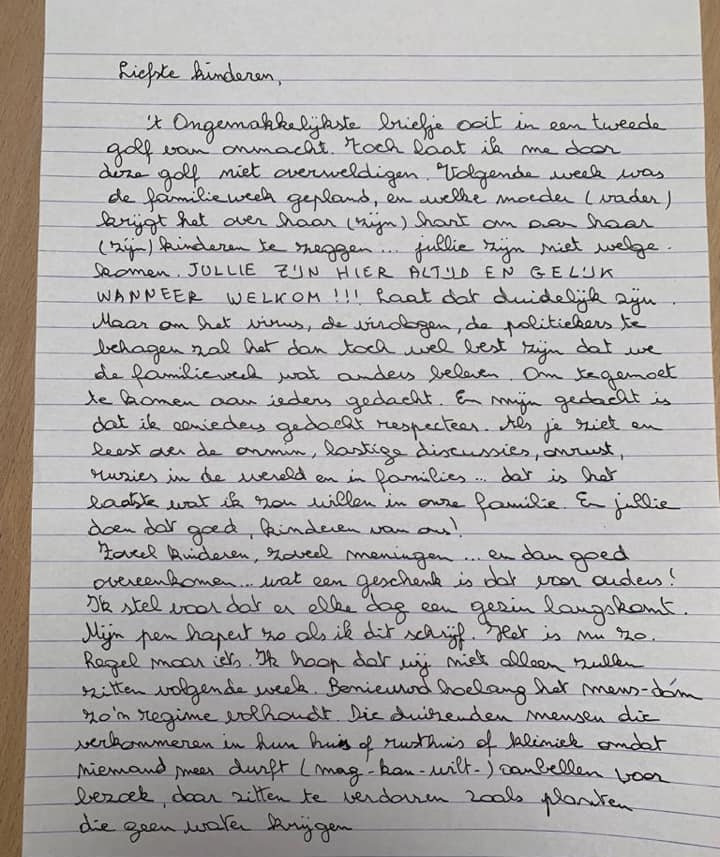 Liefste kinderen,
't Ongemakkelijkste briefje ooit in een tweede
golf van onmacht. Toch laat ik me door
deze golf niet overweldigen. Volgende week was
de familieweek gepland, en welke moeder (vader)
krijgt het over haar (zijn) hart om aan haar
(zijn) kinderen te zeggen... jullie zijn niet welge-
komen. JULLIE ZIJN HIER ALTIJD EN GELIJK
WANNEER WELKOM!!! Laat dat duidelijk zijn.
Maar om het virus, de virologen, de politiekers te
behagen zal het dan toch wel best zijn dat we
de familieweek wat anders beleven. Om tegemoet
te komen aan ieders gedacht. En mijn gedacht is
dat ik eenieders gedacht respecteer. Als je ziet en
leest over de onmin, lastige discussies, onrust,
ruzies in de wereld en in families... dat is het
laatste wat ik zou willen in onze familie. En jullie
doen dat goed, kinderen van ons!
Zoveel kinderen, zoveel meningen... en dan goed
overeenkomen... wat een geschenk is dat voor ouders!
Ik stel voor dat er elke dag een gezin langskomt.
Mijn pen hapert zo als ik dit schrijf. Het is nu zo.
Regel maar iets. Ik hoop dat wij niet alleen zullen
zitten volgende week. Benieuwd hoelang het mens-dóm
zo'n regime volhoudt. Die duizenden mensen die
verkommeren in hun huis of rusthuis of kliniek omdat
niemand meer durft (mag-kan-wilt-) aanbellen voor
bezoek, daar zitten te verdorren zoals planten
die geen water krijgen